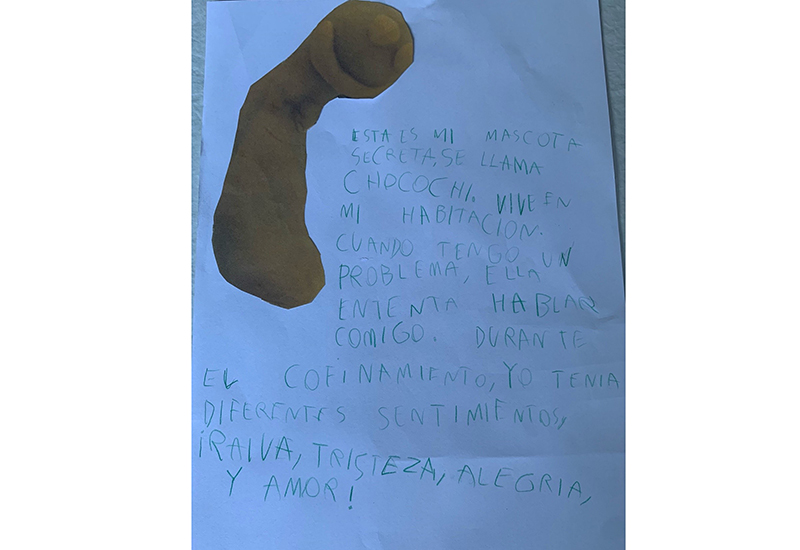 ESTA ES MI MASCOTA
SECRETA, SE LLAMA
CHOCOCHI. VIVE EN
MI HABITACION.
CUANDO TENGO UN
PROBLEMA, ELLA
ENTENTA HABLAR
COMIGO. DURANTE
EL COFINAMIENTO, YO TENIA
DIFERENTES SENTIMIENTOS,
¡RAIVA, TRISTEZA, ALEGRIA,
Y AMOR!